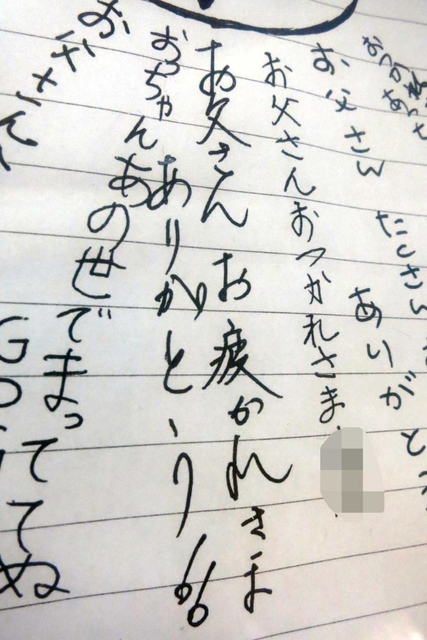 たくさん
お父さん ありがとう
お父さんおつかれさま
お父さん お疲かれさま
おっちゃん ありがとう!!
あの世でまっててね